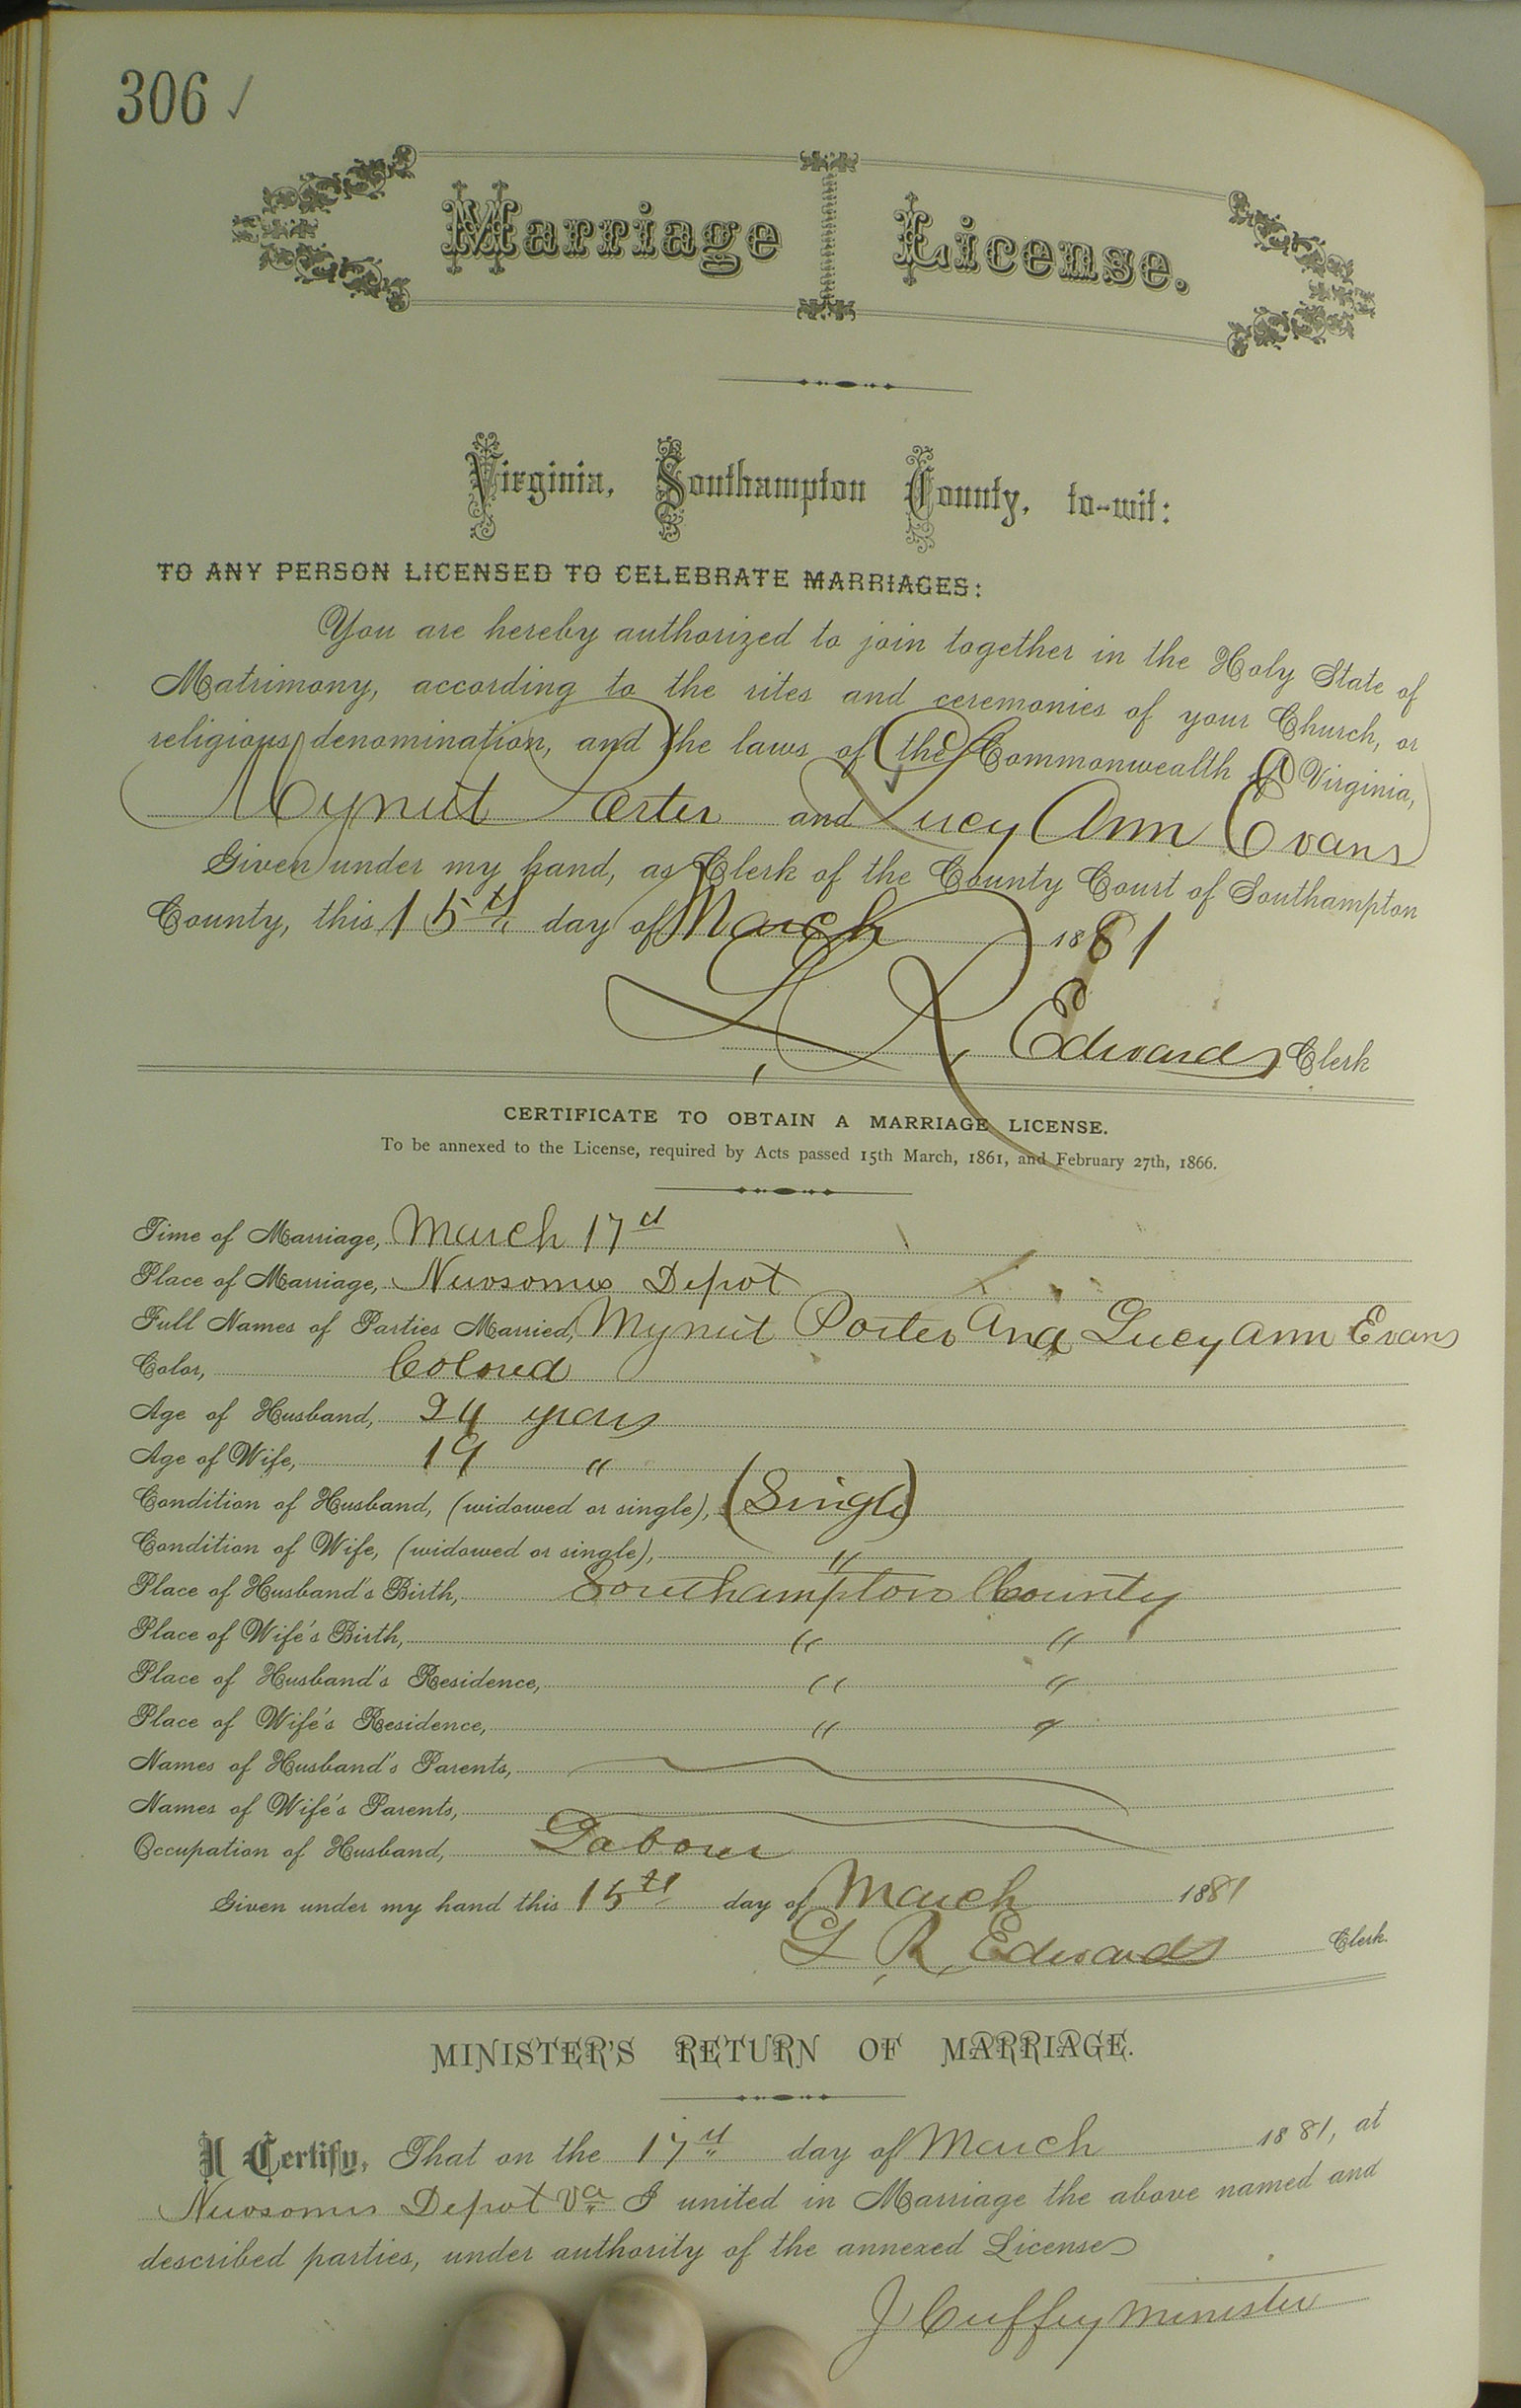 306 ✓
Marriage License.
Virginia, Southampton County, to-wit:
TO ANY PERSON LICENSED TO CELEBRATE MARRIAGES:
You are hereby authorized to join together in the Holy State of
Matrimony, according to the rites and ceremonies of your Church, or
religious denomination, and the laws of the Commonwealth of Virginia,
Mynut Porter and Lucy Ann Evans
Given under my hand, as Clerk of the County Court of Southampton
County, this 15th day of March 1881
L R Edwards Clerk
CERTIFICATE TO OBTAIN A MARRIAGE LICENSE.
To be annexed to the License, required by Acts passed 15th March, 1861, and February 27th, 1866.
Time of Marriage, March 17th
Place of Marriage, Newsoms Depot
Full Names of Parties Married, Mynut Porter And Lucy Ann Evans
Color, Colored
Age of Husband, 24 years
Age of Wife, 19 "
Condition of Husband, (widowed or single), (Single)
Condition of Wife, (widowed or single), "
Place of Husband's Birth, Southampton County
Place of Wife's Birth, " "
Place of Husband's Residence, " "
Place of Wife's Residence, " "
Names of Husband's Parents,
Names of Wife's Parents,
Occupation of Husband, Laborer
Given under my hand this 15th day of March 1881
L R Edwards Clerk.
MINISTER'S RETURN OF MARRIAGE.
I Certify, That on the 17th day of March 1881, at
Newsoms Depot Va I united in Marriage the above named and
described parties, under authority of the annexed License
J Cuffey minister